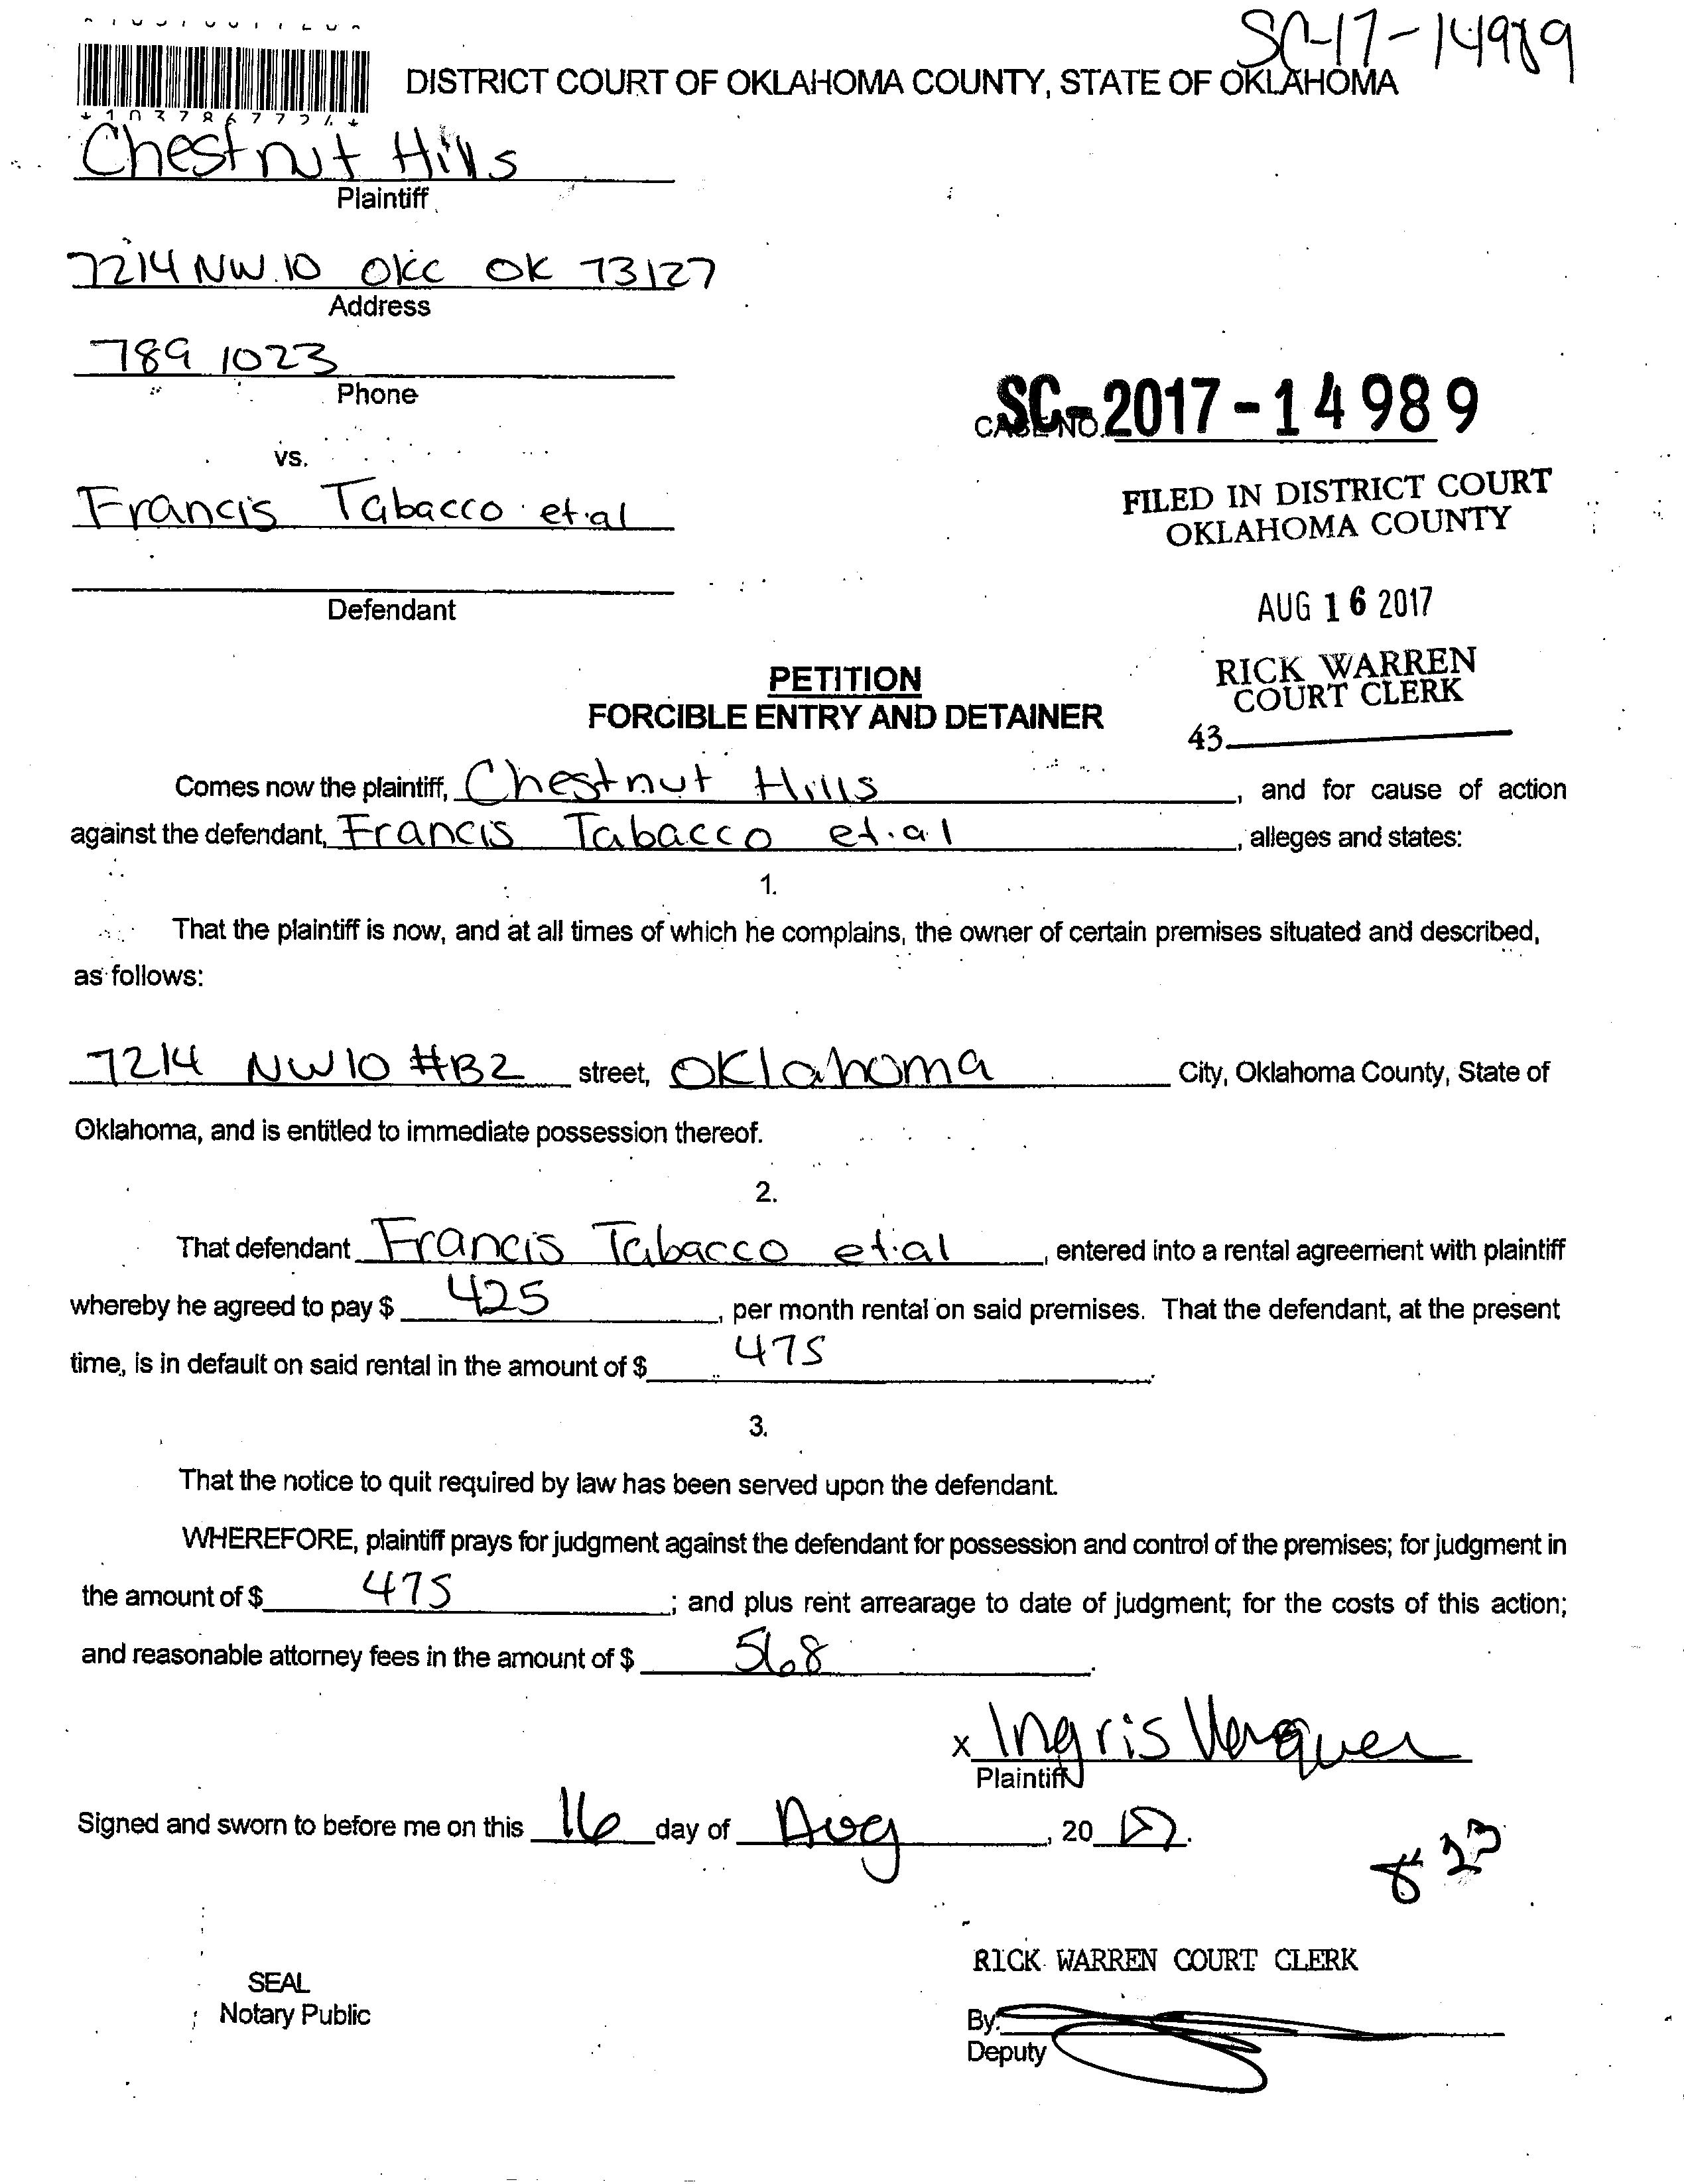 SC-17-14989
DISTRICT COURT OF OKLAHOMA COUNTY, STATE OF OKLAHOMA
Chestnut Hills
Plaintiff
7214 NW 10 OKC OK 73127
Address
789 1023
Phone
CASE NO. SC-2017-14989
vs.
Francis Tabacco et.al
FILED IN DISTRICT COURT
OKLAHOMA COUNTY
Defendant
AUG 16 2017
RICK WARREN
COURT CLERK
43
PETITION
FORCIBLE ENTRY AND DETAINER
Comes now the plaintiff, Chestnut Hills, and for cause of action
against the defendant, Francis Tabacco et.al, alleges and states:
1.
That the plaintiff is now, and at all times of which he complains, the owner of certain premises situated and described,
as follows:
7214 NW 10 #B2 street, Oklahoma City, Oklahoma County, State of
Oklahoma, and is entitled to immediate possession thereof.
2.
That defendant Francis Tabacco et.al, entered into a rental agreement with plaintiff
whereby he agreed to pay $ 425, per month rental on said premises. That the defendant, at the present
time, is in default on said rental in the amount of $ 475.
3.
That the notice to quit required by law has been served upon the defendant.
WHEREFORE, plaintiff prays for judgment against the defendant for possession and control of the premises; for judgment in
the amount of $ 475; and plus rent arrearage to date of judgment; for the costs of this action;
and reasonable attorney fees in the amount of $ 568.
x Ingris
Plaintiff
Signed and sworn to before me on this 16 day of Aug, 20 17.
8 23
RICK WARREN COURT CLERK
SEAL
Notary Public
By:
Deputy